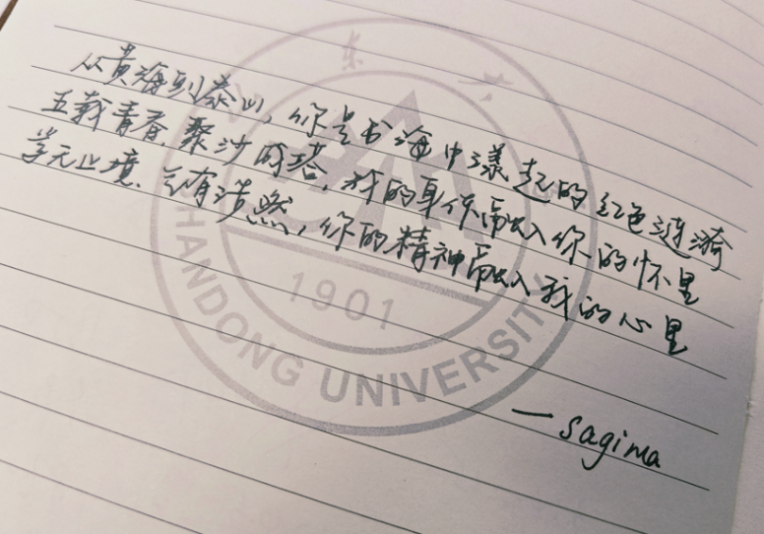 从黄海到泰山，你是书海中漾起的红色涟漪
五载青春，聚沙成塔，我的身体融入你的怀里
学无止境，气有浩然，你的精神融入我的心里
—sagima
山东大
1901
SHANDONG UNIVERSITY